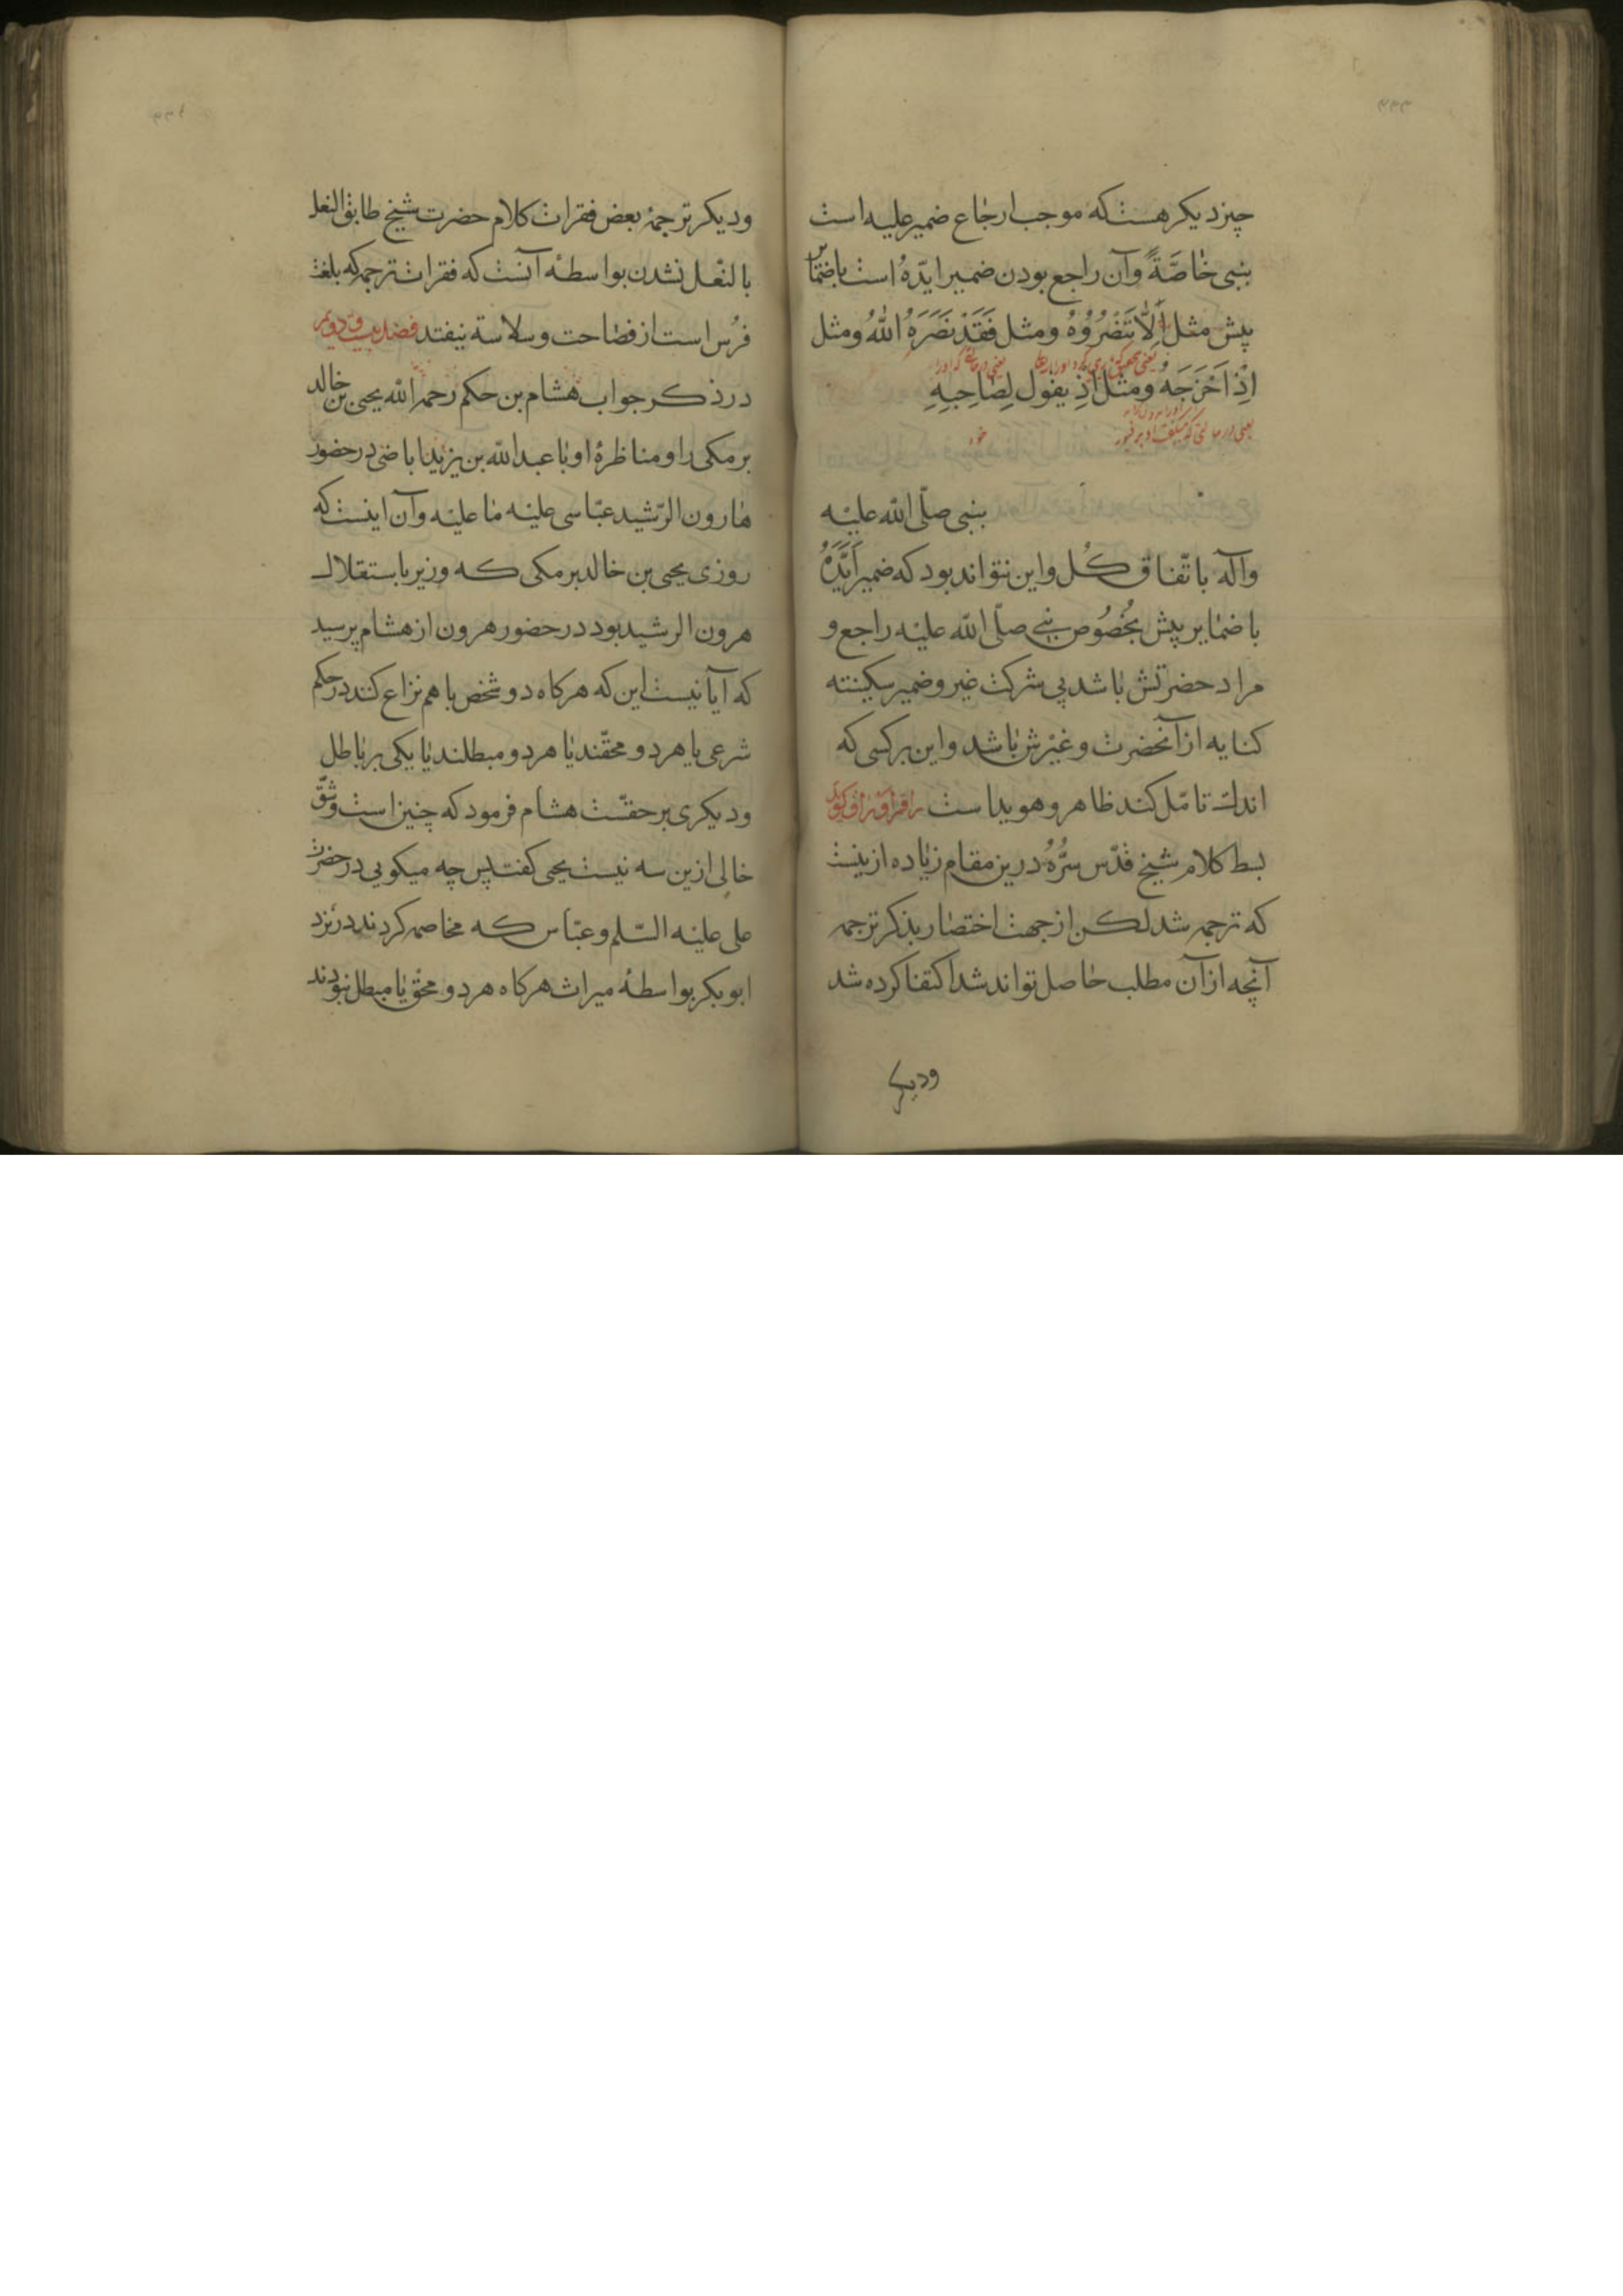 چیز دیکر هست که موجب ارجاع ضمیر علیه است
بنبی خاصّةً وآن راجع بودن ضمیر ایّدهُ است باضمایر
پیش مثل اِلّا تَنْصُرُوهُ ومثل فَقَدْ نَصَرَهُ اللّٰهُ ومثل
اِذْ اَخْرَجَهُ ومثل اِذْ یقول لِصَاحِبِهِ
بنبی صلّی اللّه علیْه
وآله باتّفاق کُل واین نتواند بود که ضمیر اَیَّدَهُ
باضمایر پیش بخُصُوص نبی صلّی اللّه علیْه راجع و
مراد حضرتش باشد بی شرکت غیر وضمیر سکینته
کنایه از آنحضرت وغیْرش باشد واین بر کسی که
اندك تامّل کند ظاهر وهویداست
بسط کلام شیخ قدّس سرُّهُ درین مقام زیاده ازینست
که ترجمه شد لکن از جهت اختصار بذکر ترجمه
آنچه از آن مطلب حاصل تواند شد اکتفا کرده شد
ودیکر
ودیکر ترجمهٔ بعض فقرات کلام حضرت شیخ طابق النعل
بالنّعل نشدن بواسطهٔ آنست که فقرات ترجمه که بلغت
فرُس است از فصاحت وسلاسة نیفتد فصل بیست ودویم
در ذکر جواب هشام بن حکم رحمه اللّه یحیی بن خالد
برمکی را ومناظرهٔ او با عبد اللّه بن یزید اباضی در حضور
هارون الرّشید عبّاسی علیْه ما علیْه وآن اینست که
روزی یحیی بن خالد برمکی که وزیر باستقلال
هرون الرشید بود در حضور هرون از هشام پرسید
که آیا نیست این که هرکاه دو شخص با هم نزاع کنند در حکم
شرعی یا هر دو محقّند یا هر دو مبطلند یا یکی بر باطل
ودیکری بر حقّست هشام فرمود که چنین است وشقّ
خالی ازین سه نیست یحیی کفت پس چه میکویی در حضرت
علی علیْه السّلم وعبّاس که مخاصمه کردند در نزد
ابو بکر بواسطهٔ میراث هرکاه هر دو محقّ یا مبطل نبودند